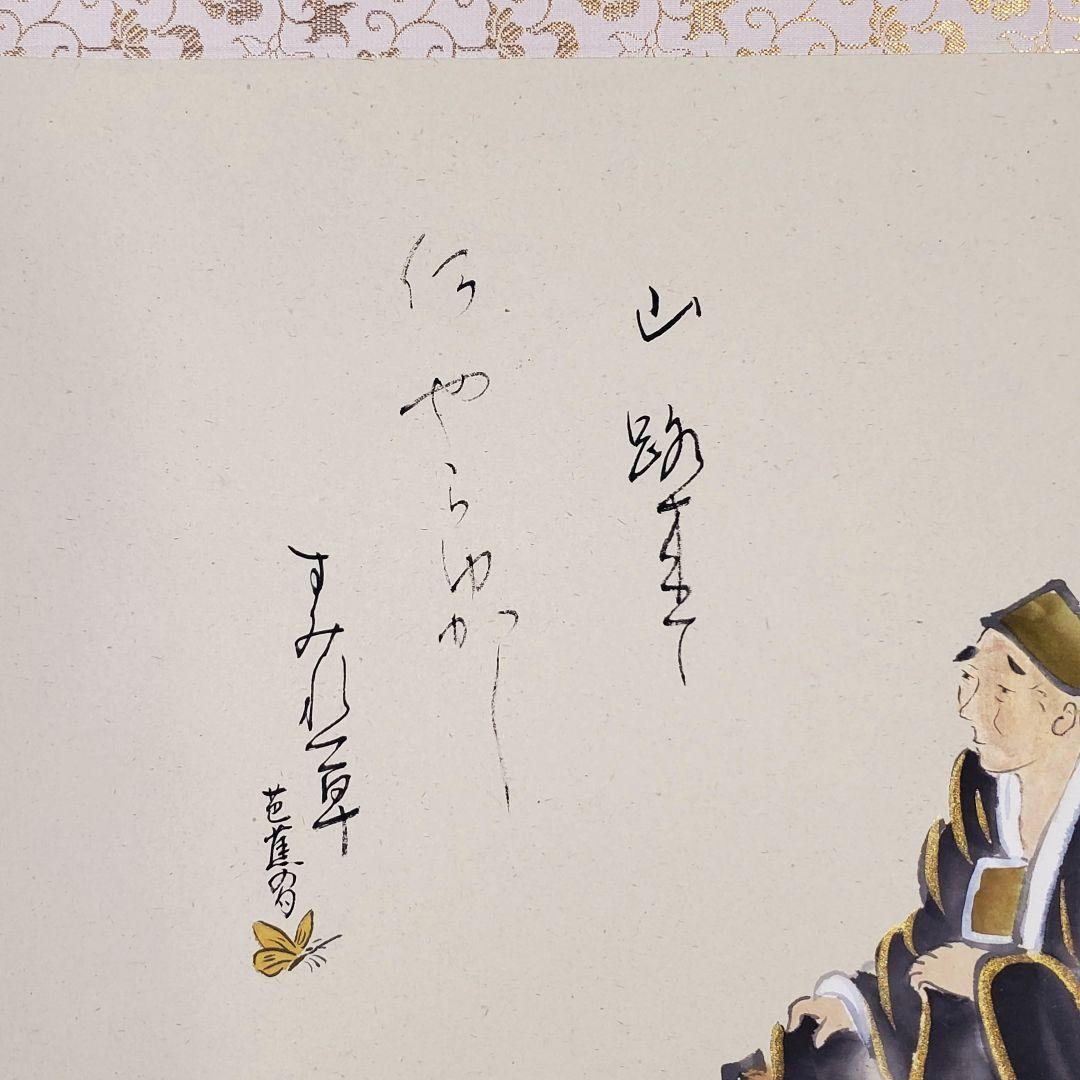 山路来て
何やらゆかし
すみれ草
芭蕉翁